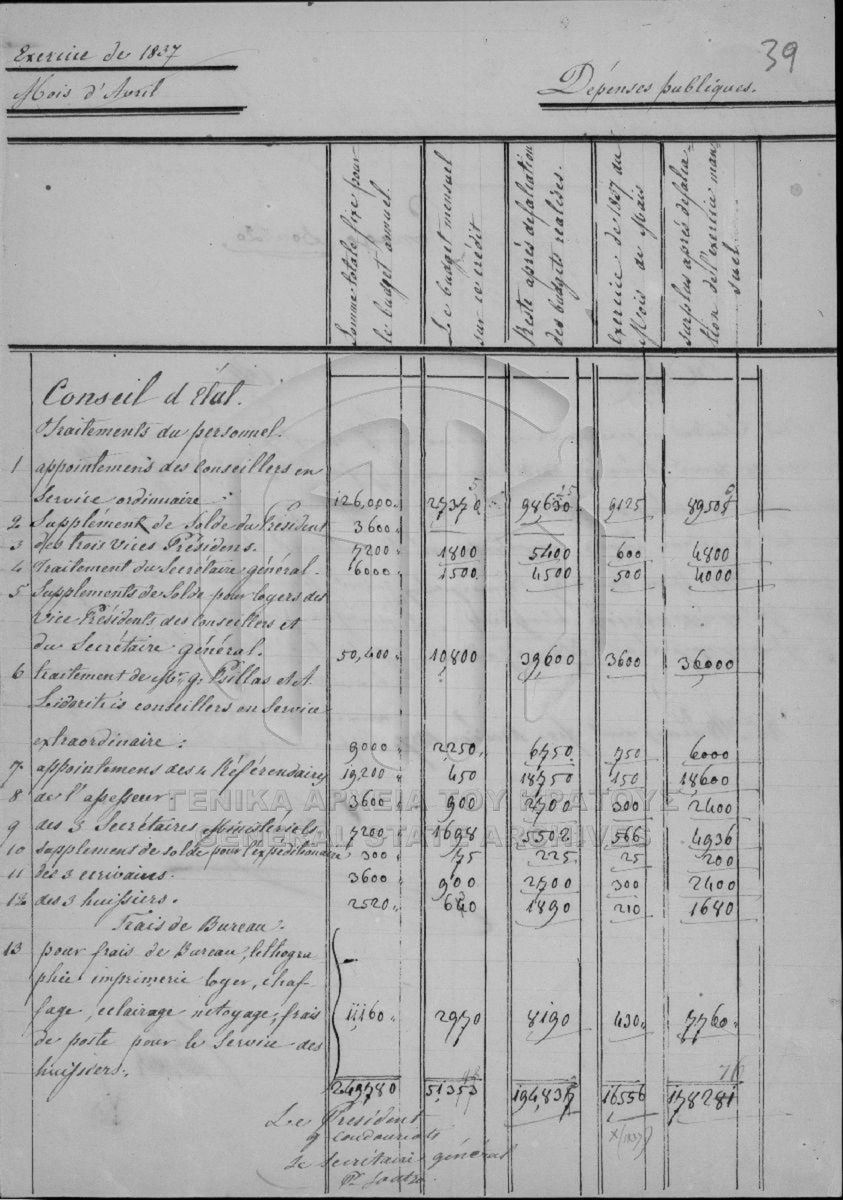 Exercice de 1837
39
Mois d'Avril
Dépenses publiques.
Somme totale fixe pour le budget annuel.
Le budget mensuel sur ce crédit
Reste après défalcation des budgets réalisés.
exercice de 1837 du Mois de Mais
surplus après défalcation de l'exercice mensuel
Conseil d'État.
Traitements du personnel.
1 appointemens des Conseillers en
Service ordinnaire 126,000 27370 98630 9125 89505
2 Supplément de Solde du Président 3600
3 des trois vices Présidens. 7200 1800 5400 600 4800
4 Traitement du Secrétaire général. 6000 1500 4500 500 4000
5 Supplements de Solde pour loyers des
vice Présidents des Conseillers et
du Secrétaire général. 50,400 10800 39600 3600 36000
6 traitement de Mr. g. Psillas et A.
Lidorikis conseillers en Service
extraordinaire : 9000 2250 6750 750 6000
7 appointemens des 4 Référendairs 19,200 450 18750 150 18600
8 de l'assesseur 3600 900 2700 300 2400
9 des 3 Secrétaires Ministériels 7200 1698 5502 566 4936
10 supplement de solde pour l'expeditionaire 300 75 225 25 200
11 des 3 ecrivains. 3600 900 2700 300 2400
12 des 3 huissiers. 2520 630 1890 210 1680
Frais de Bureau.
13 pour frais de Bureau, lithogra
phie imprimerie loyer, chaf-
fage, eclairage netoyage, frais 11,160 2970 8190 430 7760
de poste pour le Service des
huissiers.
249780 51,353 194,837 16556 178281
Le President
g Coudouriotis
Le Secrétaire général
ΓΕΝΙΚΑ ΑΡΧΕΙΑ ΤΟΥ ΚΡΑΤΟΥΣ
GENERAL STATE ARCHIVES